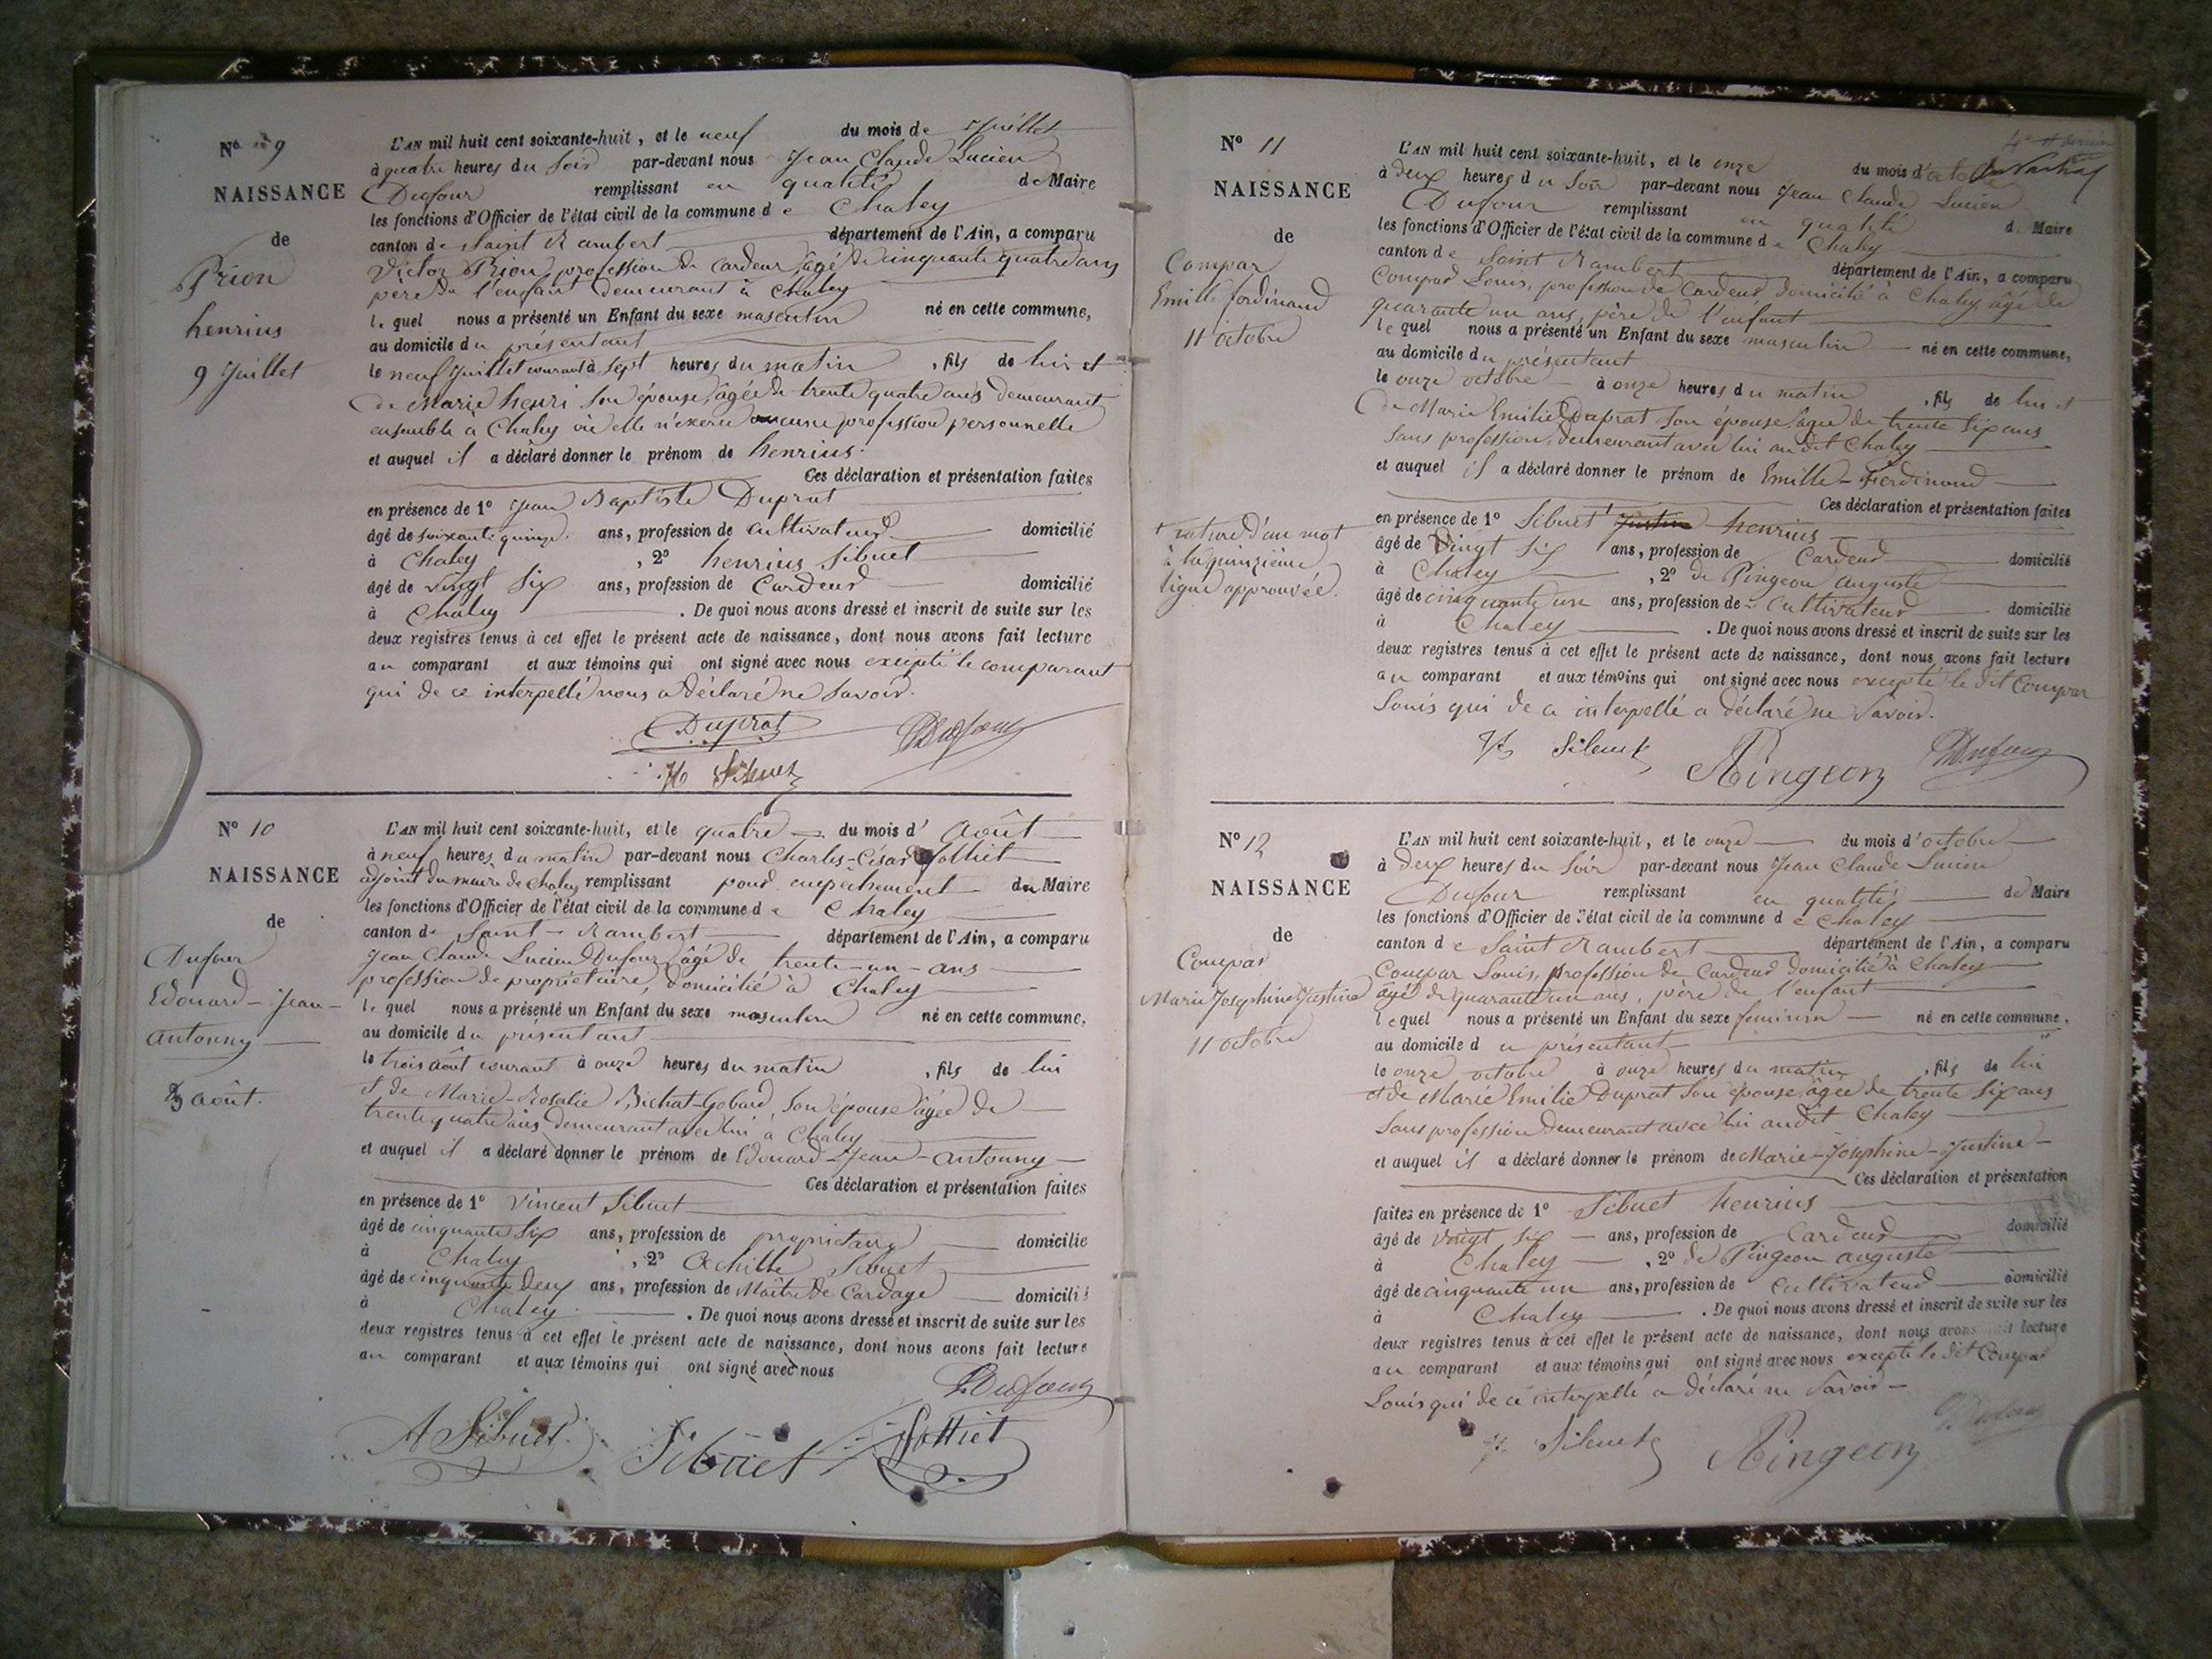 N° 9
NAISSANCE
de
Prion
henrius
9 Juillet
L'AN mil huit cent soixante-huit, et le neuf du mois de Juillet
à quatre heures du soir par-devant nous Jean Claude Lucien
Dufour remplissant en qualité de Maire
les fonctions d'Officier de l'état civil de la commune de Chaley
canton de Saint Rambert département de l'Ain, a comparu
Victor Prion, profession de Cardeur, âgé de cinquante quatre ans
père de l'enfant demeurant à Chaley
lequel nous a présenté un Enfant du sexe masculin né en cette commune,
au domicile du présentant
le neuf Juillet courant à sept heures du matin, fils de lui et
de Marie henri son épouse, âgée de trente quatre ans demeurant
ensemble à Chaley où elle n'exerce aucune profession personnelle
et auquel il a déclaré donner le prénom de henrius.
Ces déclaration et présentation faites
en présence de 1° Jean Baptiste Duprat
âgé de soixante quinze ans, profession de cultivateur domicilié
à Chaley, 2° henrius Sibuet
âgé de vingt six ans, profession de Cardeur domicilié
à Chaley. De quoi nous avons dressé et inscrit de suite sur les
deux registres tenus à cet effet le présent acte de naissance, dont nous avons fait lecture
au comparant et aux témoins qui ont signé avec nous excepté le comparant
qui de ce interpellé nous a déclaré ne savoir.
Duprat Dufour
H Sibuet
N° 10
NAISSANCE
de
Dufour
Edouard-Jean-
Antonny
3 août.
L'AN mil huit cent soixante-huit, et le quatre du mois d'Août
à neuf heures du matin par-devant nous Charles-César
adjoint du maire de Chaley remplissant pour empêchement du Maire
les fonctions d'Officier de l'état civil de la commune de Chaley
canton de Saint-Rambert département de l'Ain, a comparu
Jean Claude Lucien Dufour, âgé de trente-un-ans
profession de propriétaire, domicilié à Chaley
lequel nous a présenté un Enfant du sexe masculin né en cette commune,
au domicile du présentant
le trois Août courant à onze heures du matin, fils de lui
et de Marie-Rosalie Bichat-Gobard, son épouse âgée de
trente quatre ans demeurant avec lui à Chaley
et auquel il a déclaré donner le prénom de Edouard-Jean-Antonny
Ces déclaration et présentation faites
en présence de 1° Vincent Sibuet
âgé de cinquante six ans, profession de propriétaire domicilié
à Chaley, 2° Achille Sibuet
âgé de cinquante deux ans, profession de Maître de Cardage domicilié
à Chaley. De quoi nous avons dressé et inscrit de suite sur les
deux registres tenus à cet effet le présent acte de naissance, dont nous avons fait lecture
au comparant et aux témoins qui ont signé avec nous
Dufour
A Sibuet Sibuet
N° 11
NAISSANCE
de
Compar
Emille ferdinand
11 octobre
+ rature d'un mot
à la quinzième
ligne approuvée.
L'AN mil huit cent soixante-huit, et le onze du mois d'octobre
à deux heures du soir par-devant nous Jean Claude Lucien
Dufour remplissant en qualité de Maire
les fonctions d'Officier de l'état civil de la commune de Chaley
canton de Saint Rambert département de l'Ain, a comparu
Compar Louis, profession de Cardeur, domicilié à Chaley, âgé de
quarante un ans, père de l'enfant
lequel nous a présenté un Enfant du sexe masculin né en cette commune,
au domicile du présentant
le onze octobre à onze heures du matin, fils de lui et
de Marie Emilie Duprat son épouse, âgée de trente six ans
sans profession, demeurant avec lui audit Chaley
et auquel il a déclaré donner le prénom de Emille-Ferdinand
Ces déclaration et présentation faites
en présence de 1° Sibuet Justin henrius
âgé de vingt six ans, profession de Cardeur domicilié
à Chaley, 2° de Pingeon Auguste
âgé de cinquante un ans, profession de cultivateur domicilié
à Chaley. De quoi nous avons dressé et inscrit de suite sur les
deux registres tenus à cet effet le présent acte de naissance, dont nous avons fait lecture
au comparant et aux témoins qui ont signé avec nous excepté le dit Compar
Louis qui de ce interpellé a déclaré ne savoir.
H Sibuet Pingeon Dufour
N° 12
NAISSANCE
de
Compar
Marie Josephine Justine
11 octobre
L'AN mil huit cent soixante-huit, et le onze du mois d'octobre
à deux heures du soir par-devant nous Jean Claude Lucien
Dufour remplissant en qualité de Maire
les fonctions d'Officier de l'état civil de la commune de Chaley
canton de Saint Rambert département de l'Ain, a comparu
Compar Louis, profession de Cardeur domicilié à Chaley
âgé de quarante un ans, père de l'enfant
lequel nous a présenté un Enfant du sexe feminin né en cette commune,
au domicile du présentant
le onze octobre à onze heures du matin, fils de lui
et de Marie Emilie Duprat son épouse, âgée de trente six ans
sans profession demeurant avec lui audit Chaley
et auquel il a déclaré donner le prénom de Marie-Josephine-Justine-
Ces déclaration et présentation
faites en présence de 1° Sibuet henrius
âgé de vingt six ans, profession de Cardeur domicilié
à Chaley, 2° de Pingeon Auguste
âgé de cinquante un ans, profession de cultivateur domicilié
à Chaley. De quoi nous avons dressé et inscrit de suite sur les
deux registres tenus à cet effet le présent acte de naissance, dont nous avons fait lecture
au comparant et aux témoins qui ont signé avec nous excepté le dit Compar
Louis qui de ce interpellé a déclaré ne savoir
H Sibuet Pingeon Dufour